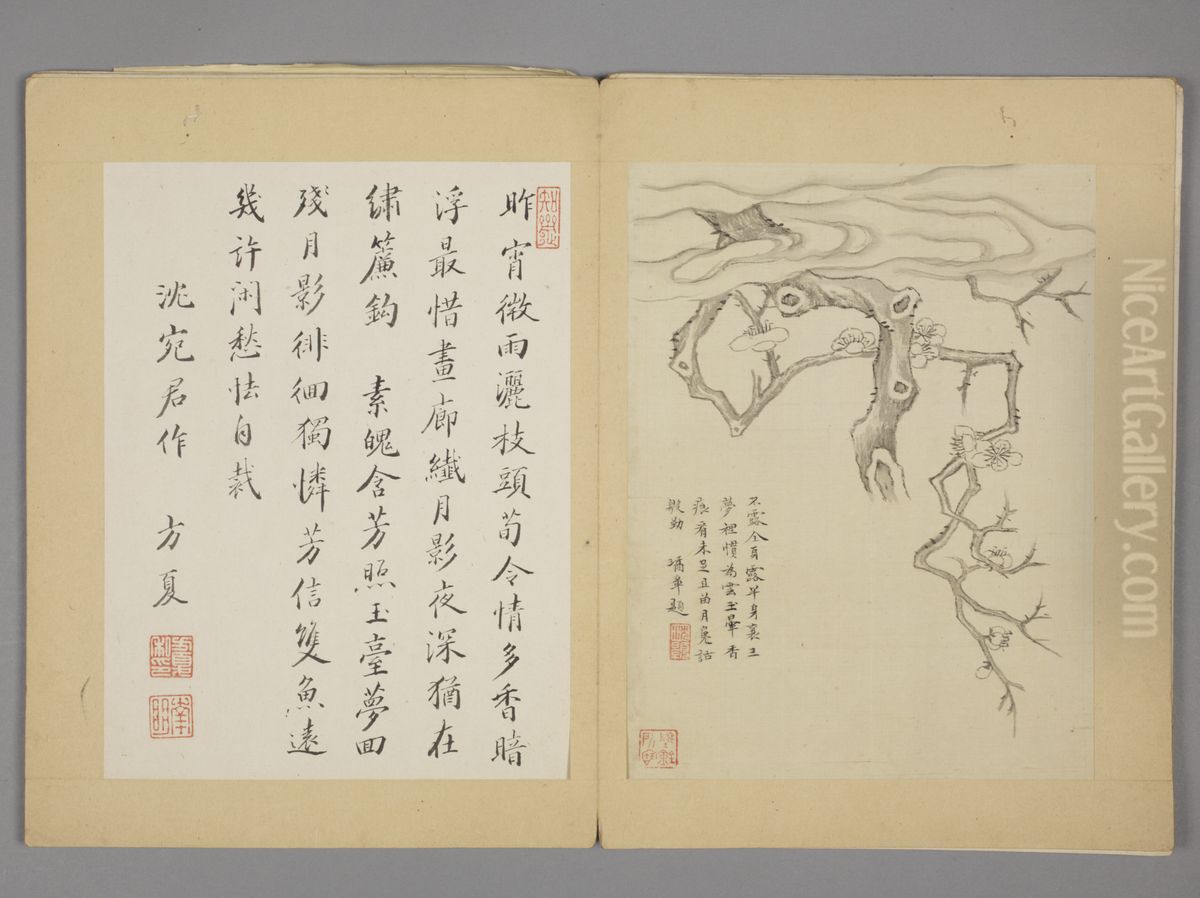 昨宵微雨灑枝頭荀令情多香暗
浮最惜畫廊纖月影夜深猶在
繡簾鈎 素魄含芳照玉臺夢回
殘月影徘徊獨憐芳信雙魚遠
幾許閑愁怯自裁
沈宛君作 方夏
不露全身露半身裏王
夢裡慣為雲玉暈香
痕看未足且留月兔話
殷勤 璚華題
NiceArtGallery.com